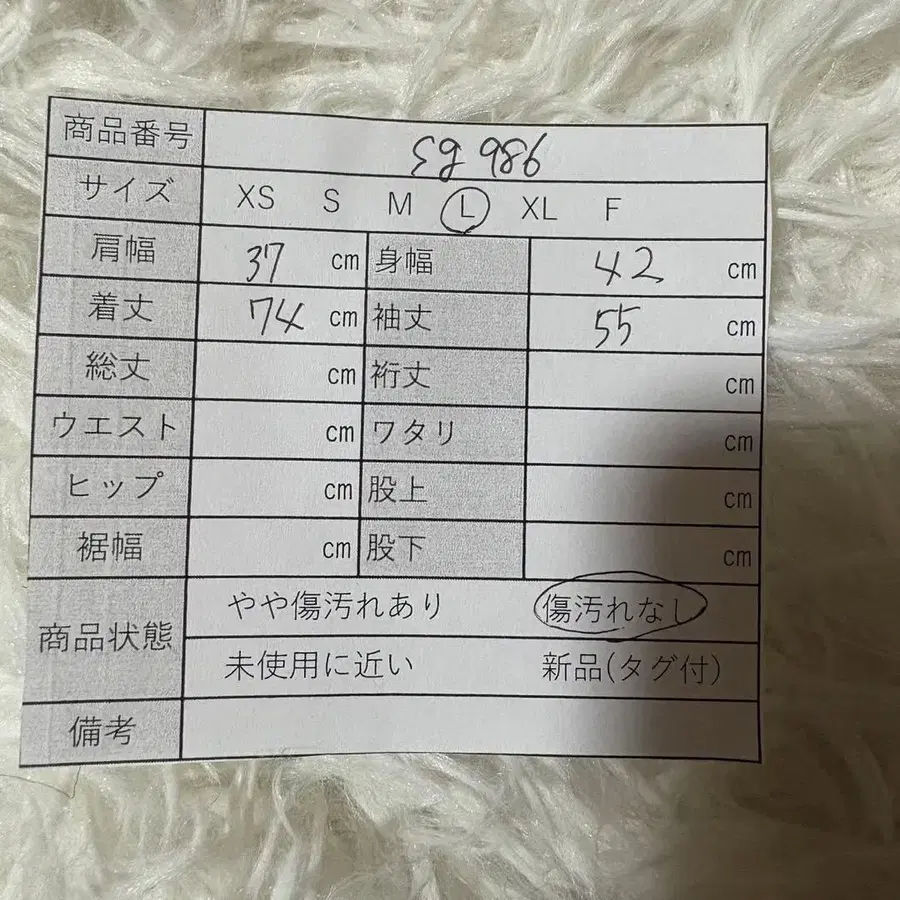 商品番号
サイズ XS S M L XL F
肩幅 37 cm 身幅 42 cm
着丈 74 cm 袖丈 55 cm
総丈 cm 裄丈 cm
ウエスト cm ワタリ cm
ヒップ cm 股上 cm
裾幅 cm 股下 cm
商品状態 やや傷汚れあり 傷汚れなし
未使用に近い 新品(タグ付)
備考